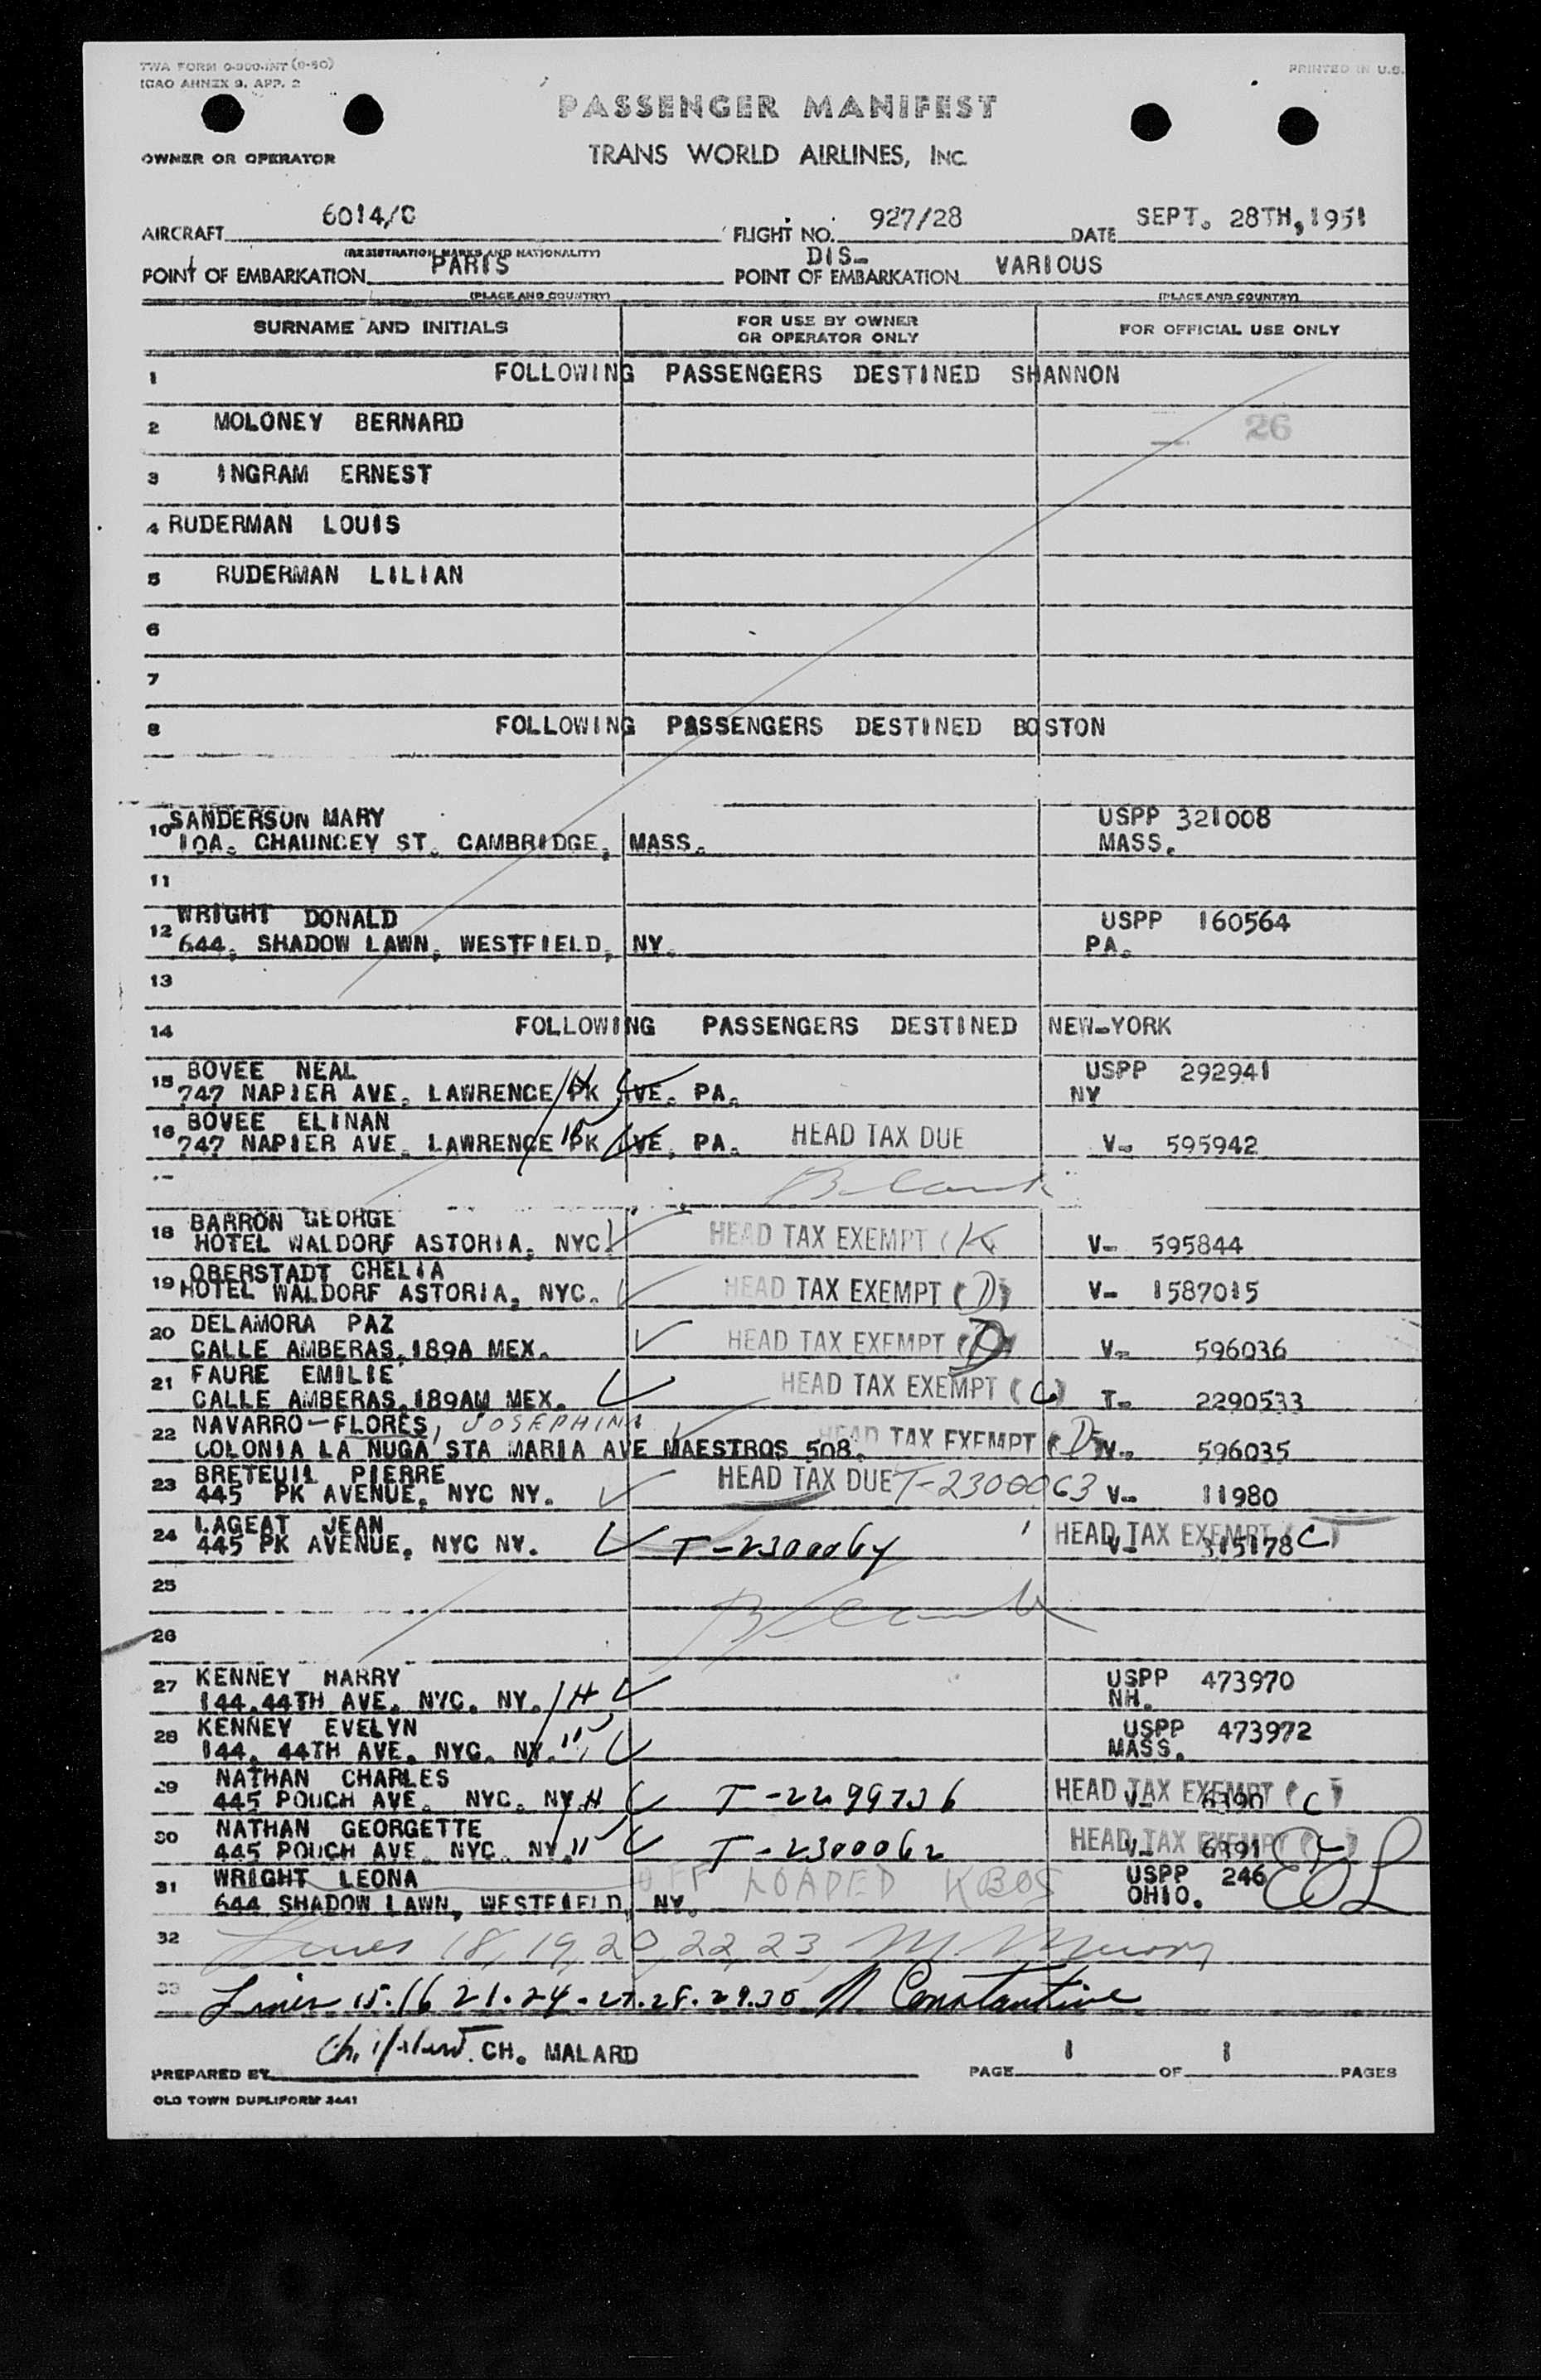 TWA FORM 0-900-INT (9-50)
ICAO ANNEX 9, APP. 2
PRINTED IN U.S.
PASSENGER MANIFEST
OWNER OR OPERATOR
TRANS WORLD AIRLINES, INC
AIRCRAFT 6014/C FLIGHT NO. 927/28 DATE SEPT. 28TH,1951
(REGISTRATION MARKS AND NATIONALITY)
DIS-
POINT OF EMBARKATION PARIS POINT OF EMBARKATION VARIOUS
(PLACE AND COUNTRY) (PLACE AND COUNTRY)
SURNAME AND INITIALS FOR USE BY OWNER OR OPERATOR ONLY FOR OFFICIAL USE ONLY
1 FOLLOWING PASSENGERS DESTINED SHANNON
2 MOLONEY BERNARD 26
3 INGRAM ERNEST
4 RUDERMAN LOUIS
5 RUDERMAN LILIAN
6
7
8 FOLLOWING PASSENGERS DESTINED BOSTON
10 SANDERSON MARY USPP 321008
10A. CHAUNCEY ST. CAMBRIDGE, MASS. MASS.
11
12 WRIGHT DONALD USPP 160564
644, SHADOW LAWN, WESTFIELD, NY. PA.
13
14 FOLLOWING PASSENGERS DESTINED NEW-YORK
15 BOVEE NEAL USPP 292941
747 NAPIER AVE. LAWRENCE PK AVE. PA. H NY
16 BOVEE ELINAN
747 NAPIER AVE. LAWRENCE PK AVE, PA. HEAD TAX DUE V- 595942
Blank
18 BARRON GEORGE
HOTEL WALDORF ASTORIA, NYC. HEAD TAX EXEMPT (K V- 595844
19 OBERSTADT CHELIA
HOTEL WALDORF ASTORIA, NYC. HEAD TAX EXEMPT (D) V- 1587015
20 DELAMORA PAZ
CALLE AMBERAS,189A MEX. HEAD TAX EXEMPT (D) V- 596036
21 FAURE EMILIE
CALLE AMBERAS,189AM MEX. HEAD TAX EXEMPT (C) T- 2290533
22 NAVARRO-FLORES, JOSEPHINA
COLONIA LA NUGA STA MARIA AVE MAESTROS 508. HEAD TAX EXEMPT (D) V- 596035
23 BRETEUIL PIERRE
445 PK AVENUE, NYC NY. HEAD TAX DUE T-2300063 V- 11980
24 LAGEAT JEAN
445 PK AVENUE, NYC NY. T-2300064 HEAD TAX EXEMPT (C) V- 315178
25
Blank
26
27 KENNEY HARRY USPP 473970
144.44TH AVE. NYC. NY. H NH.
28 KENNEY EVELYN USPP 473972
144. 44TH AVE. NYC. NY. MASS.
29 NATHAN CHARLES
445 POUCH AVE. NYC. NY. H T-2299736 HEAD TAX EXEMPT (C) V- 6390
30 NATHAN GEORGETTE
445 POUCH AVE. NYC. NY. T-2300062 HEAD TAX EXEMPT V- 6391
31 WRIGHT LEONA OFF LOADED KBOS USPP 246
644 SHADOW LAWN, WESTFIELD, NY. OHIO.
32 Lines 18, 19, 20, 22, 23,
33 Lines 15.16 21.24.27.28.29.30 Constantine
PREPARED BY CH. MALARD PAGE 1 OF 1 PAGES
OLD TOWN DUPLIFORM 3441